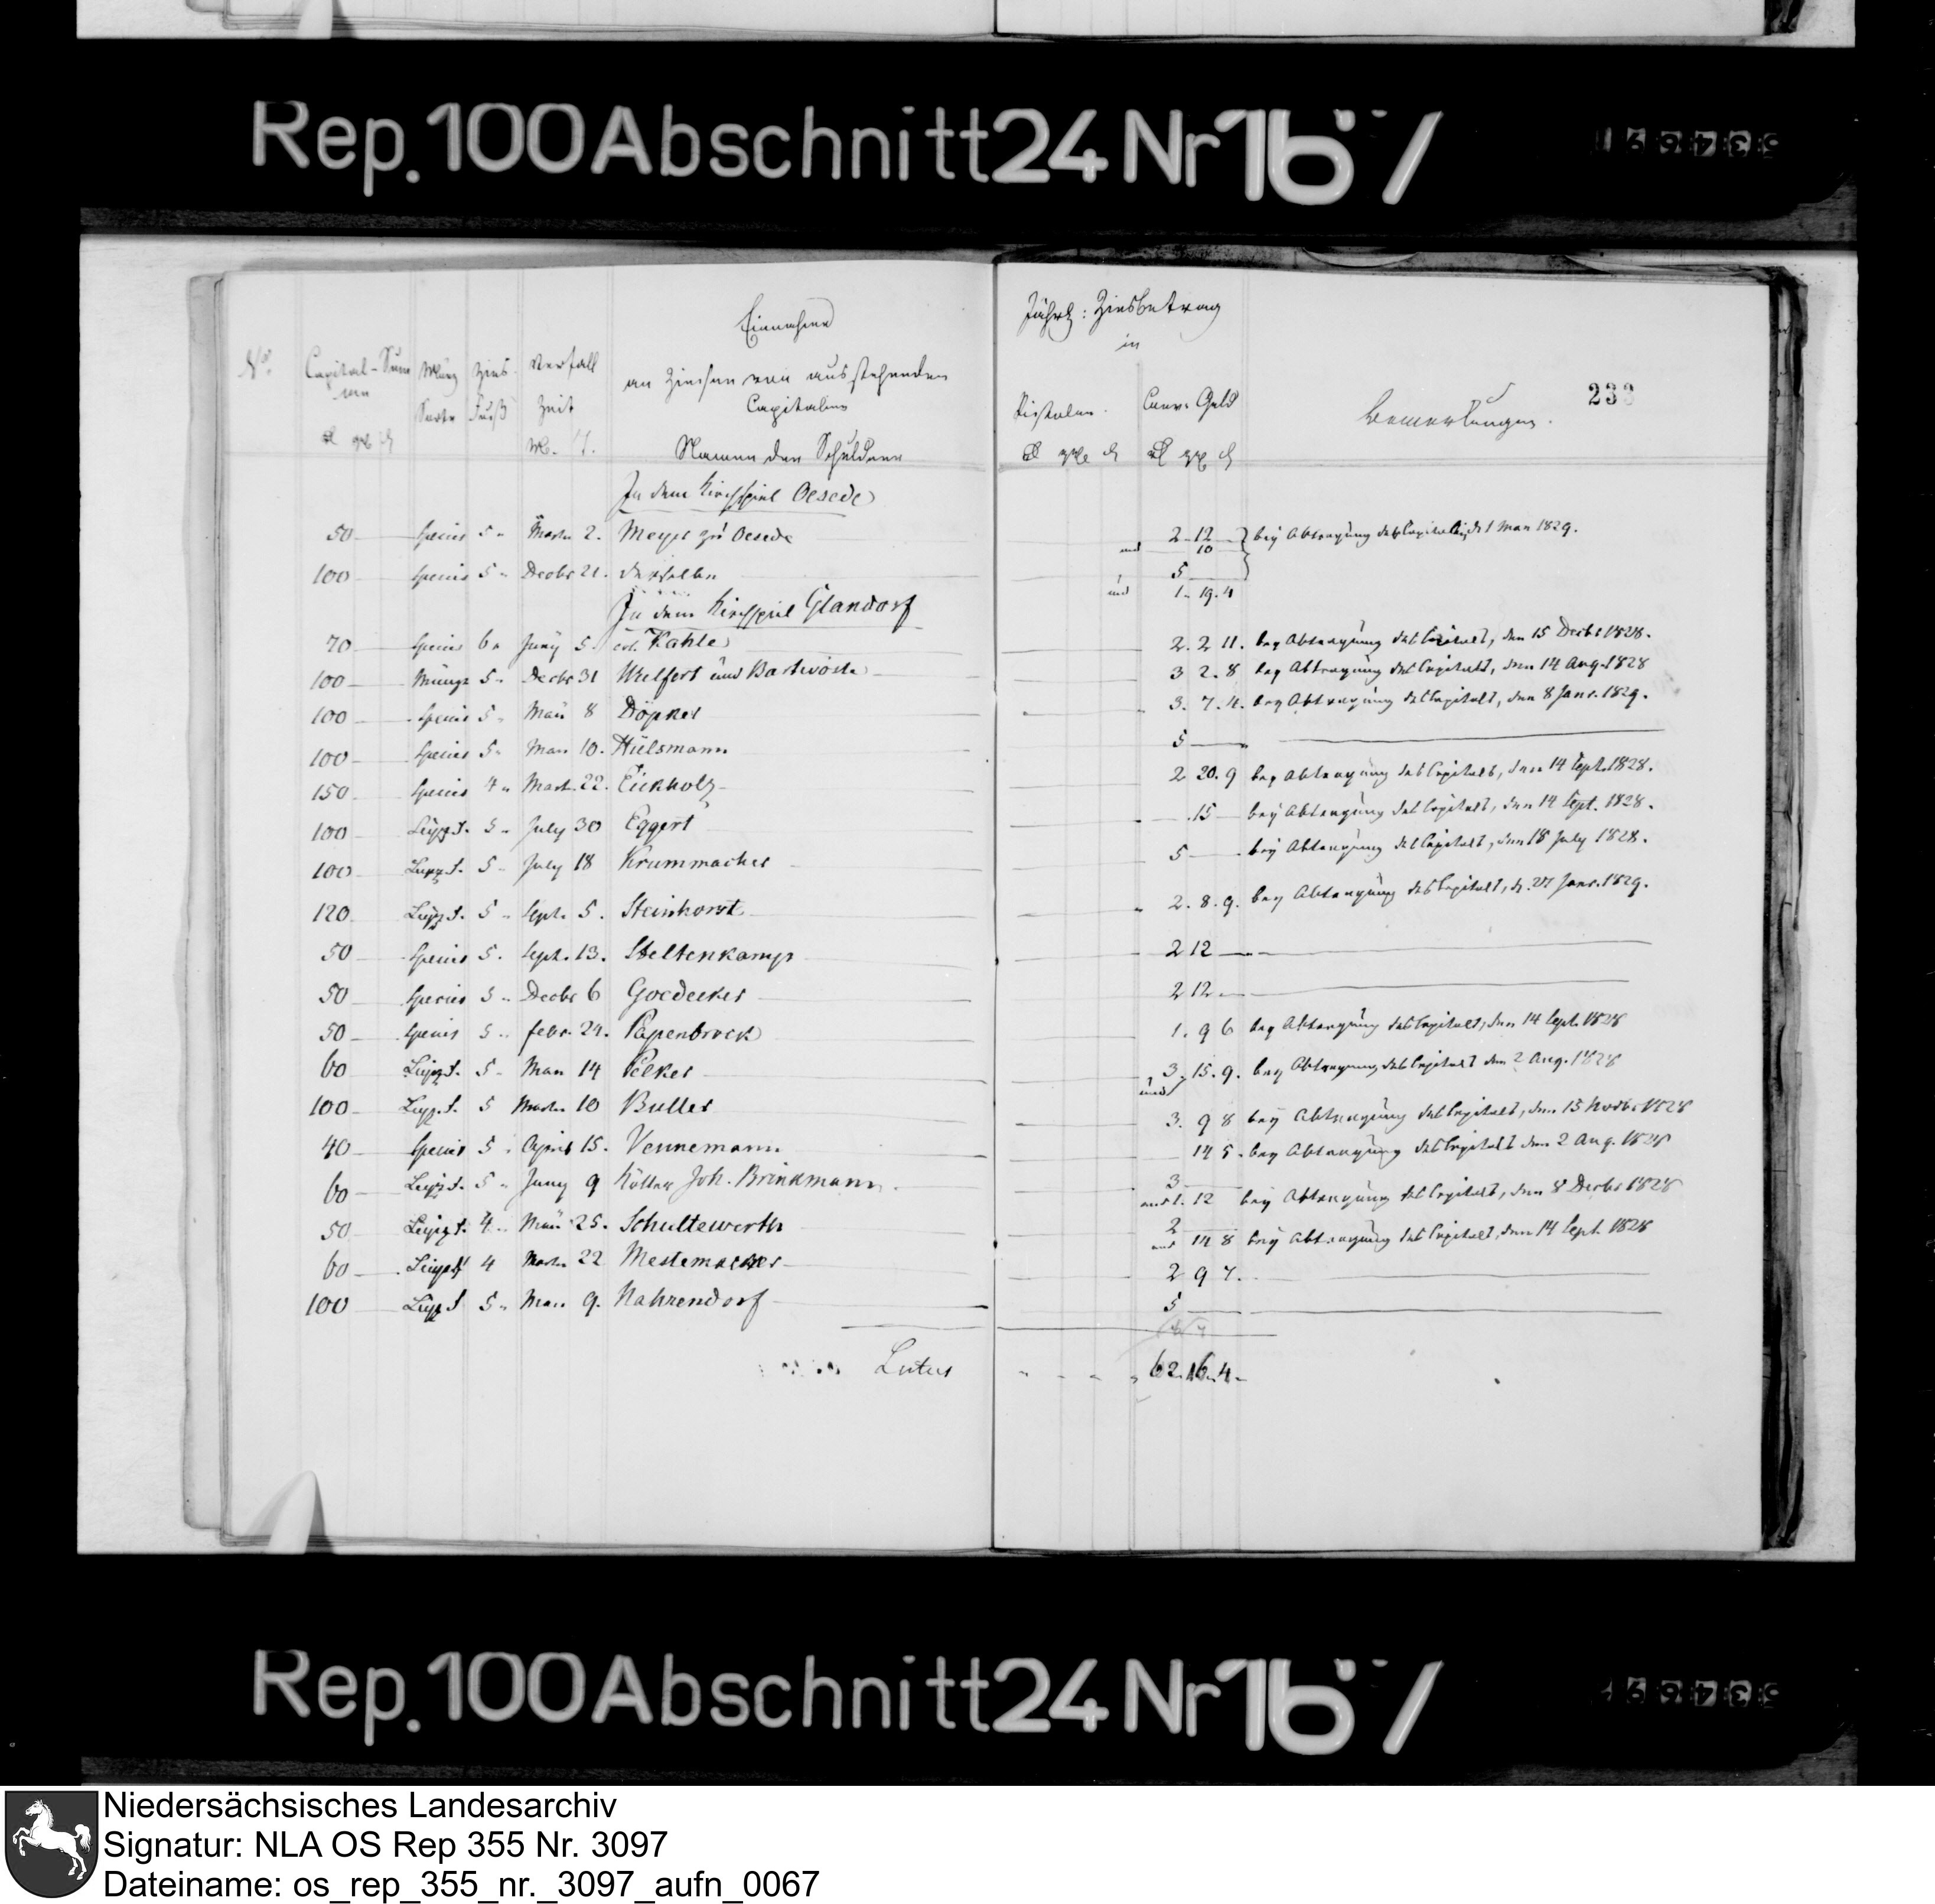 Rep. 100 Abschnitt 24 Nr 167
Einnahme
Jährl: Zinsbetrag
in
No. Capital-Summen Münz Sorte Zins Fuß Verfall Zeit
an Zinsen von ausstehenden
Capitalien
Namen der Schuldner
Pistolen. Conv: Geld
Bemerkungen.
233
In dem Kirchspiel Oesede
50 Species 5 Martz 2. Meyer zu Oesede 2 12 bey Abtragung des Capitals, d. 1 Man 1829.
und 10
100 Species 5 Decbr 21. derselbe 5
und 1. 19. 4
In dem Kirchspiel Glandorf
70 Species 6 Juny 5. col. Kahle 2. 2 11. bey Abtragung des Capitals, den 15 Decbr 1828.
100 Münze 5. Decbr 31 Welfert und Bartwoste 3 2. 8 bey Abtragung des Capitals, den 14 Aug. 1828
100 Species 5 8 Döpker 3. 7. 4. bey Abtragung des Capitals, den 8 Janr. 1829.
100 Species 5 10. Hülsmann 5
150 Species 4 Martz 22. Eickholz 2 20. 9 bey Abtragung des Capitals, den 14 Sept. 1828.
100 Leipz. f. 5 July 30 Eggert 15 bey Abtragung des Capitals, den 14 Sept. 1828.
100 Leipz. f. 5 July 18 Krummacher 5 bey Abtragung des Capitals, den 18 July 1828.
120 Leipz f. 5 Sept. 5. Steinhorst 2. 8. 9. bey Abtragung des Capitals, d. 27 Janr. 1829.
50 Species 5. Sept. 13. Steltenkamp 2 12
50 Species 5 Decbr 6 Goedecker 2 12
50 Species 5 febr. 24. Papenbrock 1. 9 6 bey Abtragung des Capitals, den 14 Sept. 1828
60 Leipz f. 5 14 Pelker 3. 15. 9. bey Abtragung des Capitals den 2 Aug. 1828
und
100 Leipz. f. 5 Martz 10 Buller 3. 9 8 bey Abtragung des Capitals, den 15 Novbr 1828
40 Species 5 April 15. Vennemann 14 5. bey Abtragung des Capitals den 2 Aug. 1828
60 Leipz f. 5 Juny 9 Kötter Joh. Brinkmann 3
und 1. 12 bey Abtragung des Capitals, den 8 Decbr 1828
50 Leipz f. 4 25. Schultewerth 2
und 14 8 bey Abtragung des Capitals, den 14 Sept. 1828
60 Leipz f 4 Martz 22 Mestemacher 2 9 7.
100 Leipz f 5 9. Nahrendorf 5
Latus 62. 16. 4
Rep. 100 Abschnitt 24 Nr 167
Niedersächsisches Landesarchiv
Signatur: NLA OS Rep 355 Nr. 3097
Dateiname: os_rep_355_nr._3097_aufn_0067